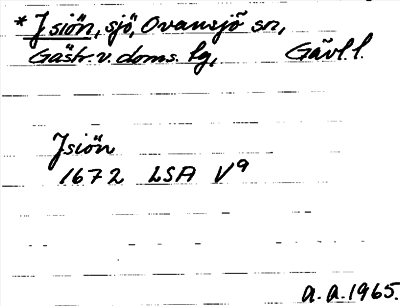 * Jsiön, sjö, Ovansjö sn,
Gästr. v. doms. lg, Gävl. l.
Jsiön
1672 LSA V9
a. a. 1965.